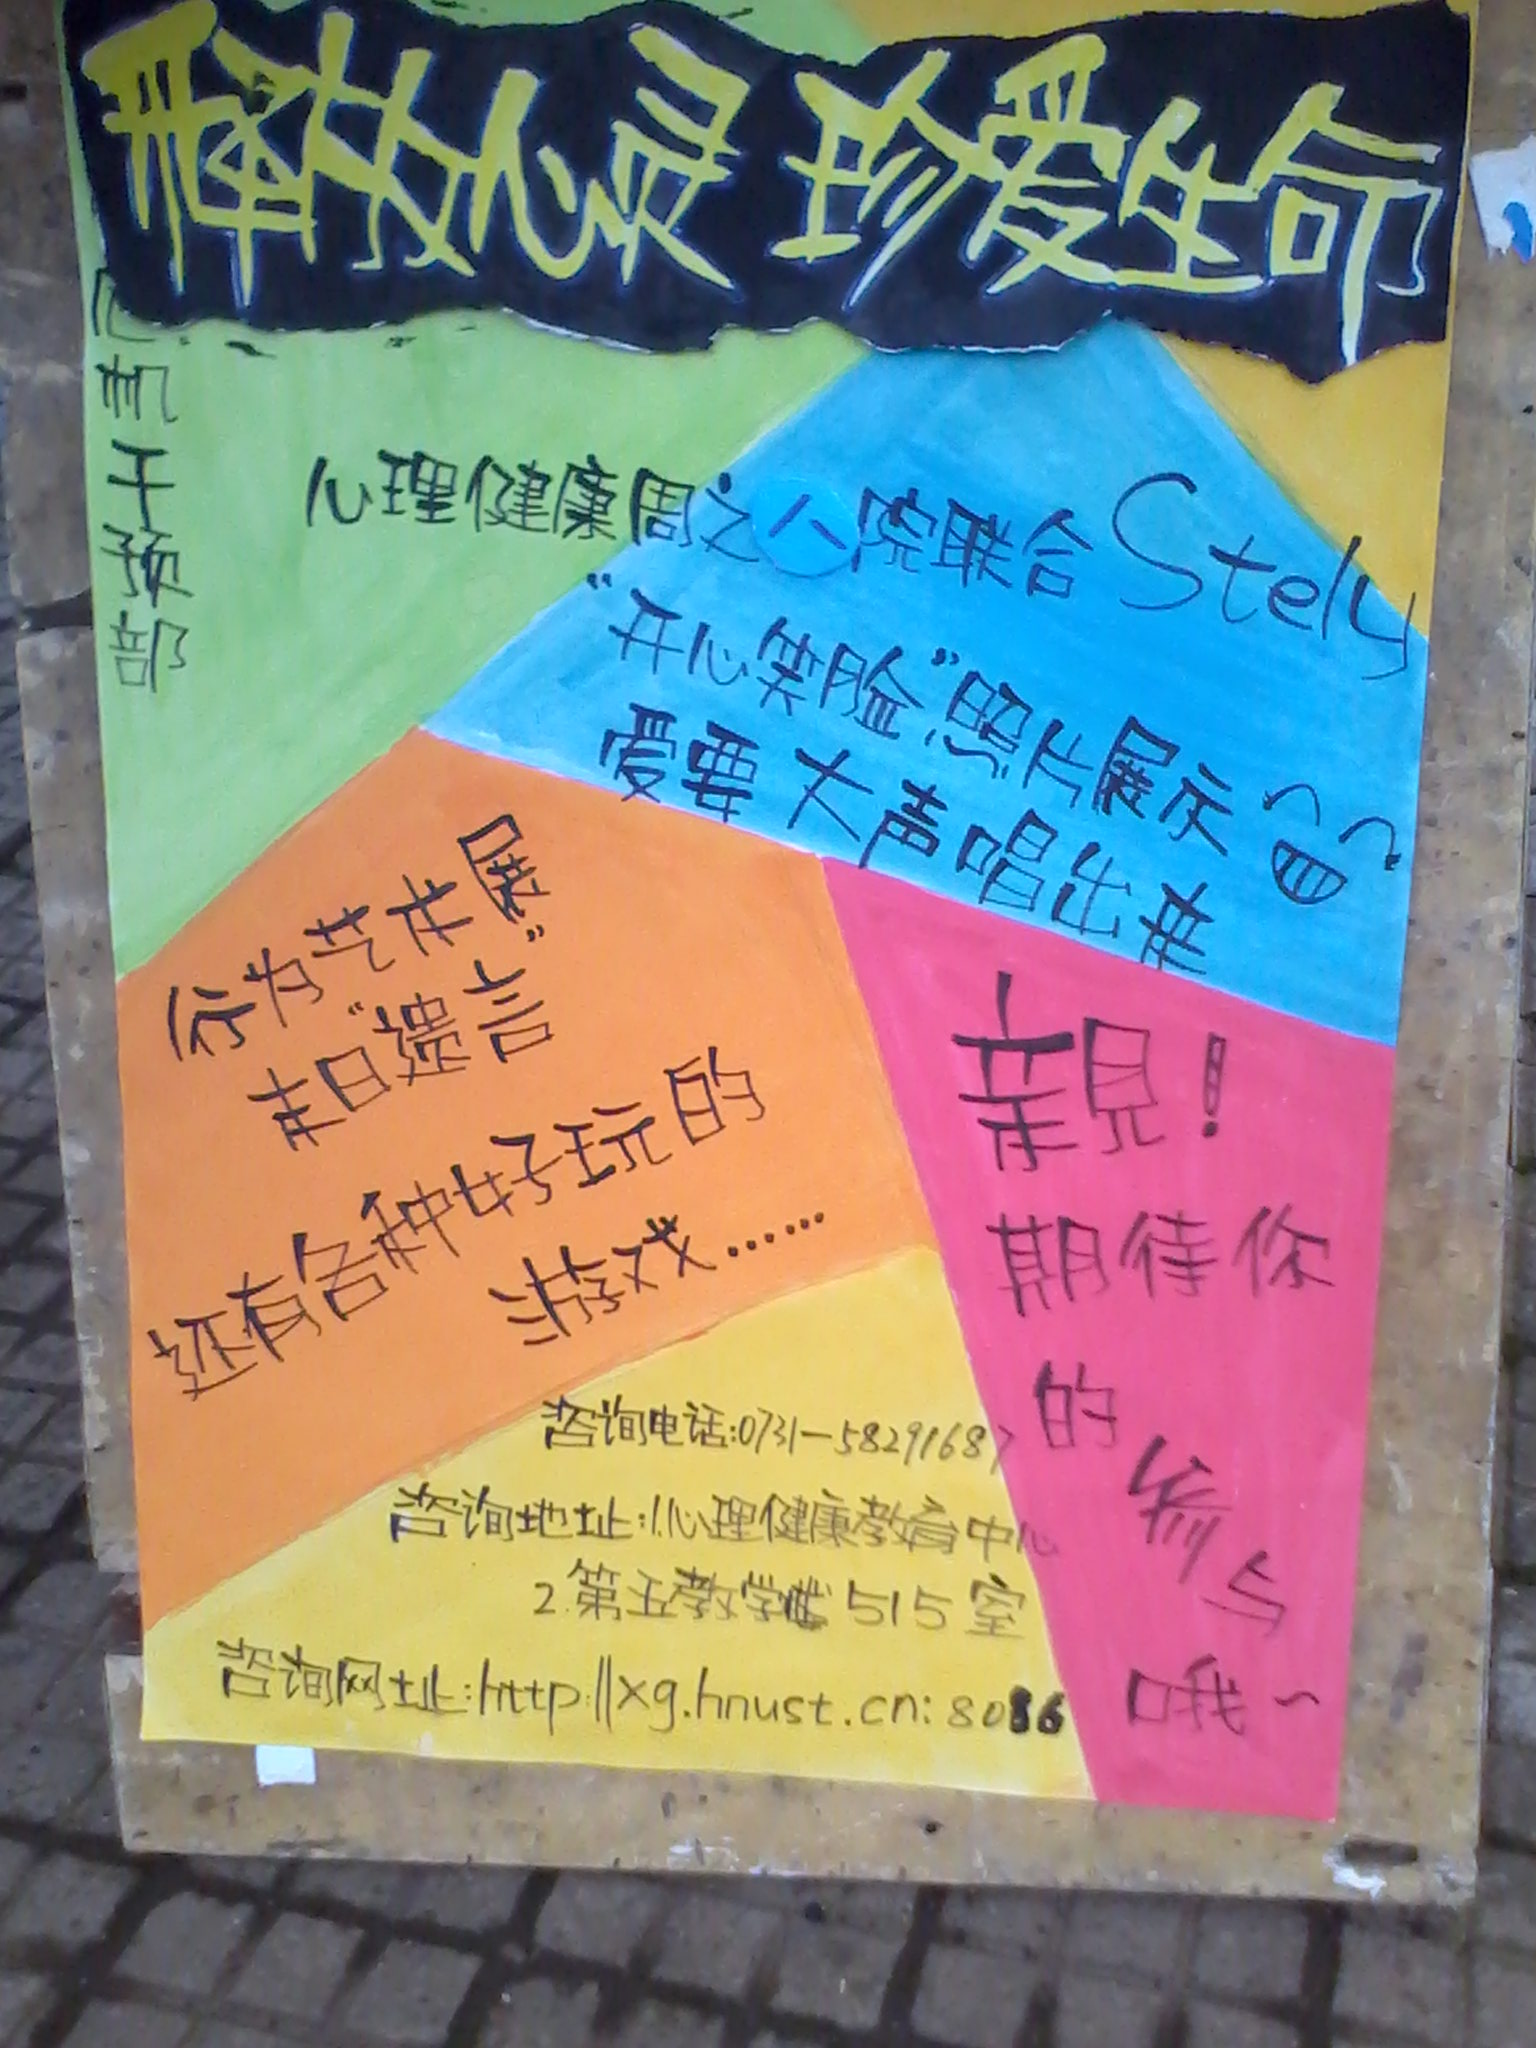 释放心灵 珍爱生命
危机干预部
心理健康周之八院联合Stely
"开心笑脸"照片展示
爱要大声唱出来
行为艺术展
"末日遗言"
还有各种好玩的
游戏……
亲!
期待你
的
参
与
哦~
咨询电话:0731-58291687
咨询地址:1.心理健康教育中心
2.第五教学楼515室
咨询网址:http://xg.hnust.cn:8086